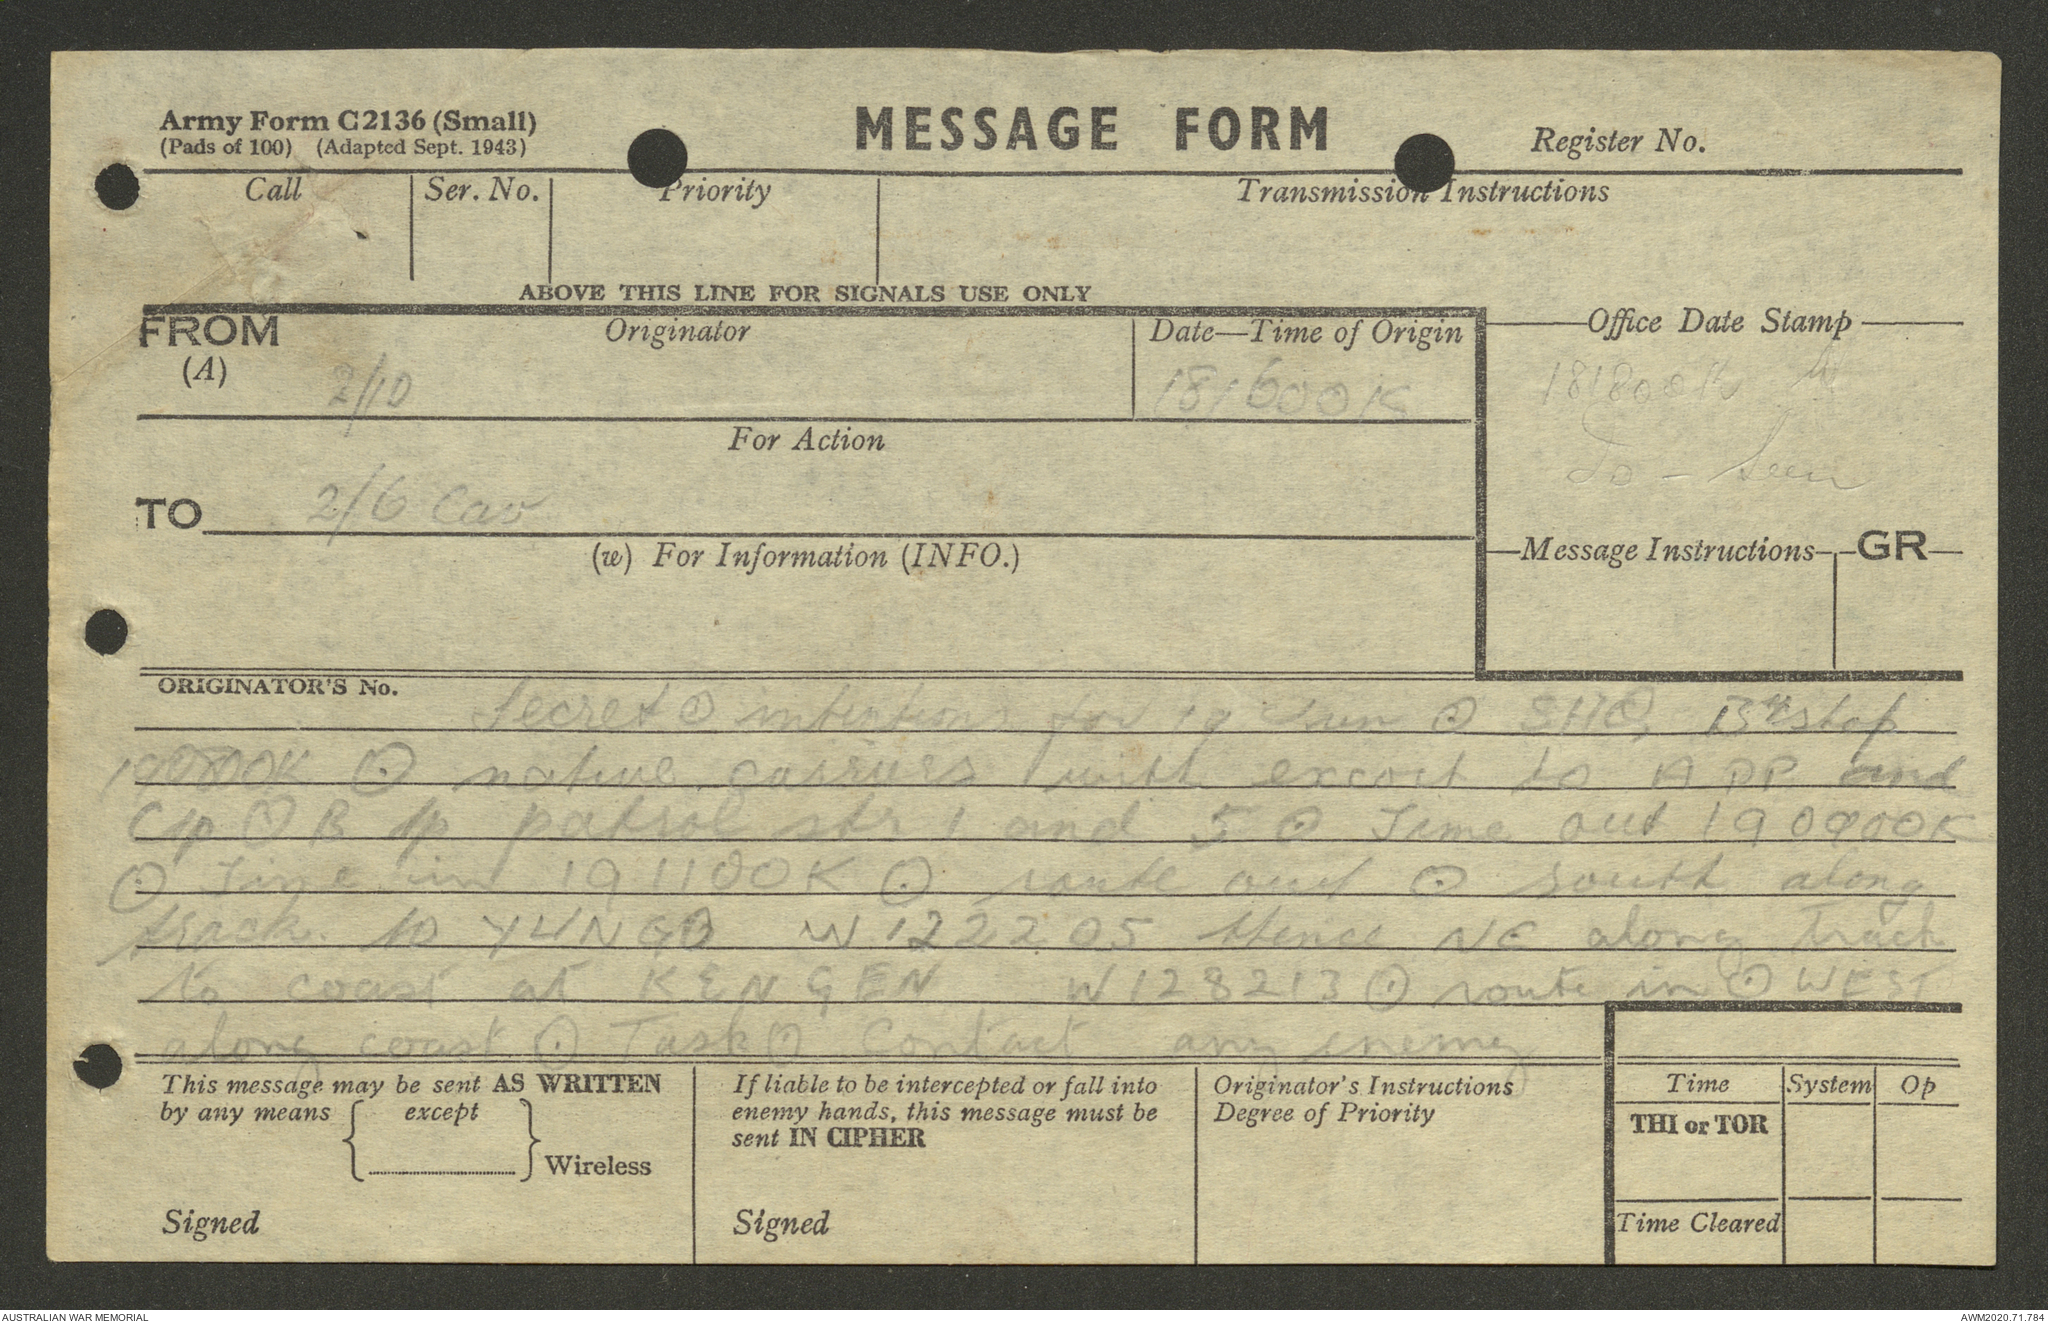 Army Form C2136 (Small)
(Pads of 100) (Adapted Sept. 1943)
MESSAGE FORM
Register No.
Call
Ser. No.
Priority
Transmission Instructions
ABOVE THIS LINE FOR SIGNALS USE ONLY
FROM
(A)
Originator
2/10
Date—Time of Origin
181600K
Office Date Stamp
181800K
Io - Seen
For Action
TO
2/6 Cav
(w) For Information (INFO.)
Message Instructions
GR
ORIGINATOR'S No.
Secret ⊙ intentions for 19 Jun ⊙
⊙ native carriers with excort to ADP and
Cp ⊙ B Tp patrol str 1 and 5 ⊙ Time out 190900K
⊙ Time in 191100K ⊙ route out ⊙ south along
track to YUNGO W122205 thence NE along track
to coast at KENGEN W128213 ⊙ route in ⊙ WEST
along coast ⊙ Task ⊙ Contact any enemy
This message may be sent AS WRITTEN
by any means { except } Wireless
Signed
If liable to be intercepted or fall into
enemy hands, this message must be
sent IN CIPHER
Signed
Originator's Instructions
Degree of Priority
Time
System
Op
THI or TOR
Time Cleared
AUSTRALIAN WAR MEMORIAL
AWM2020.71.784